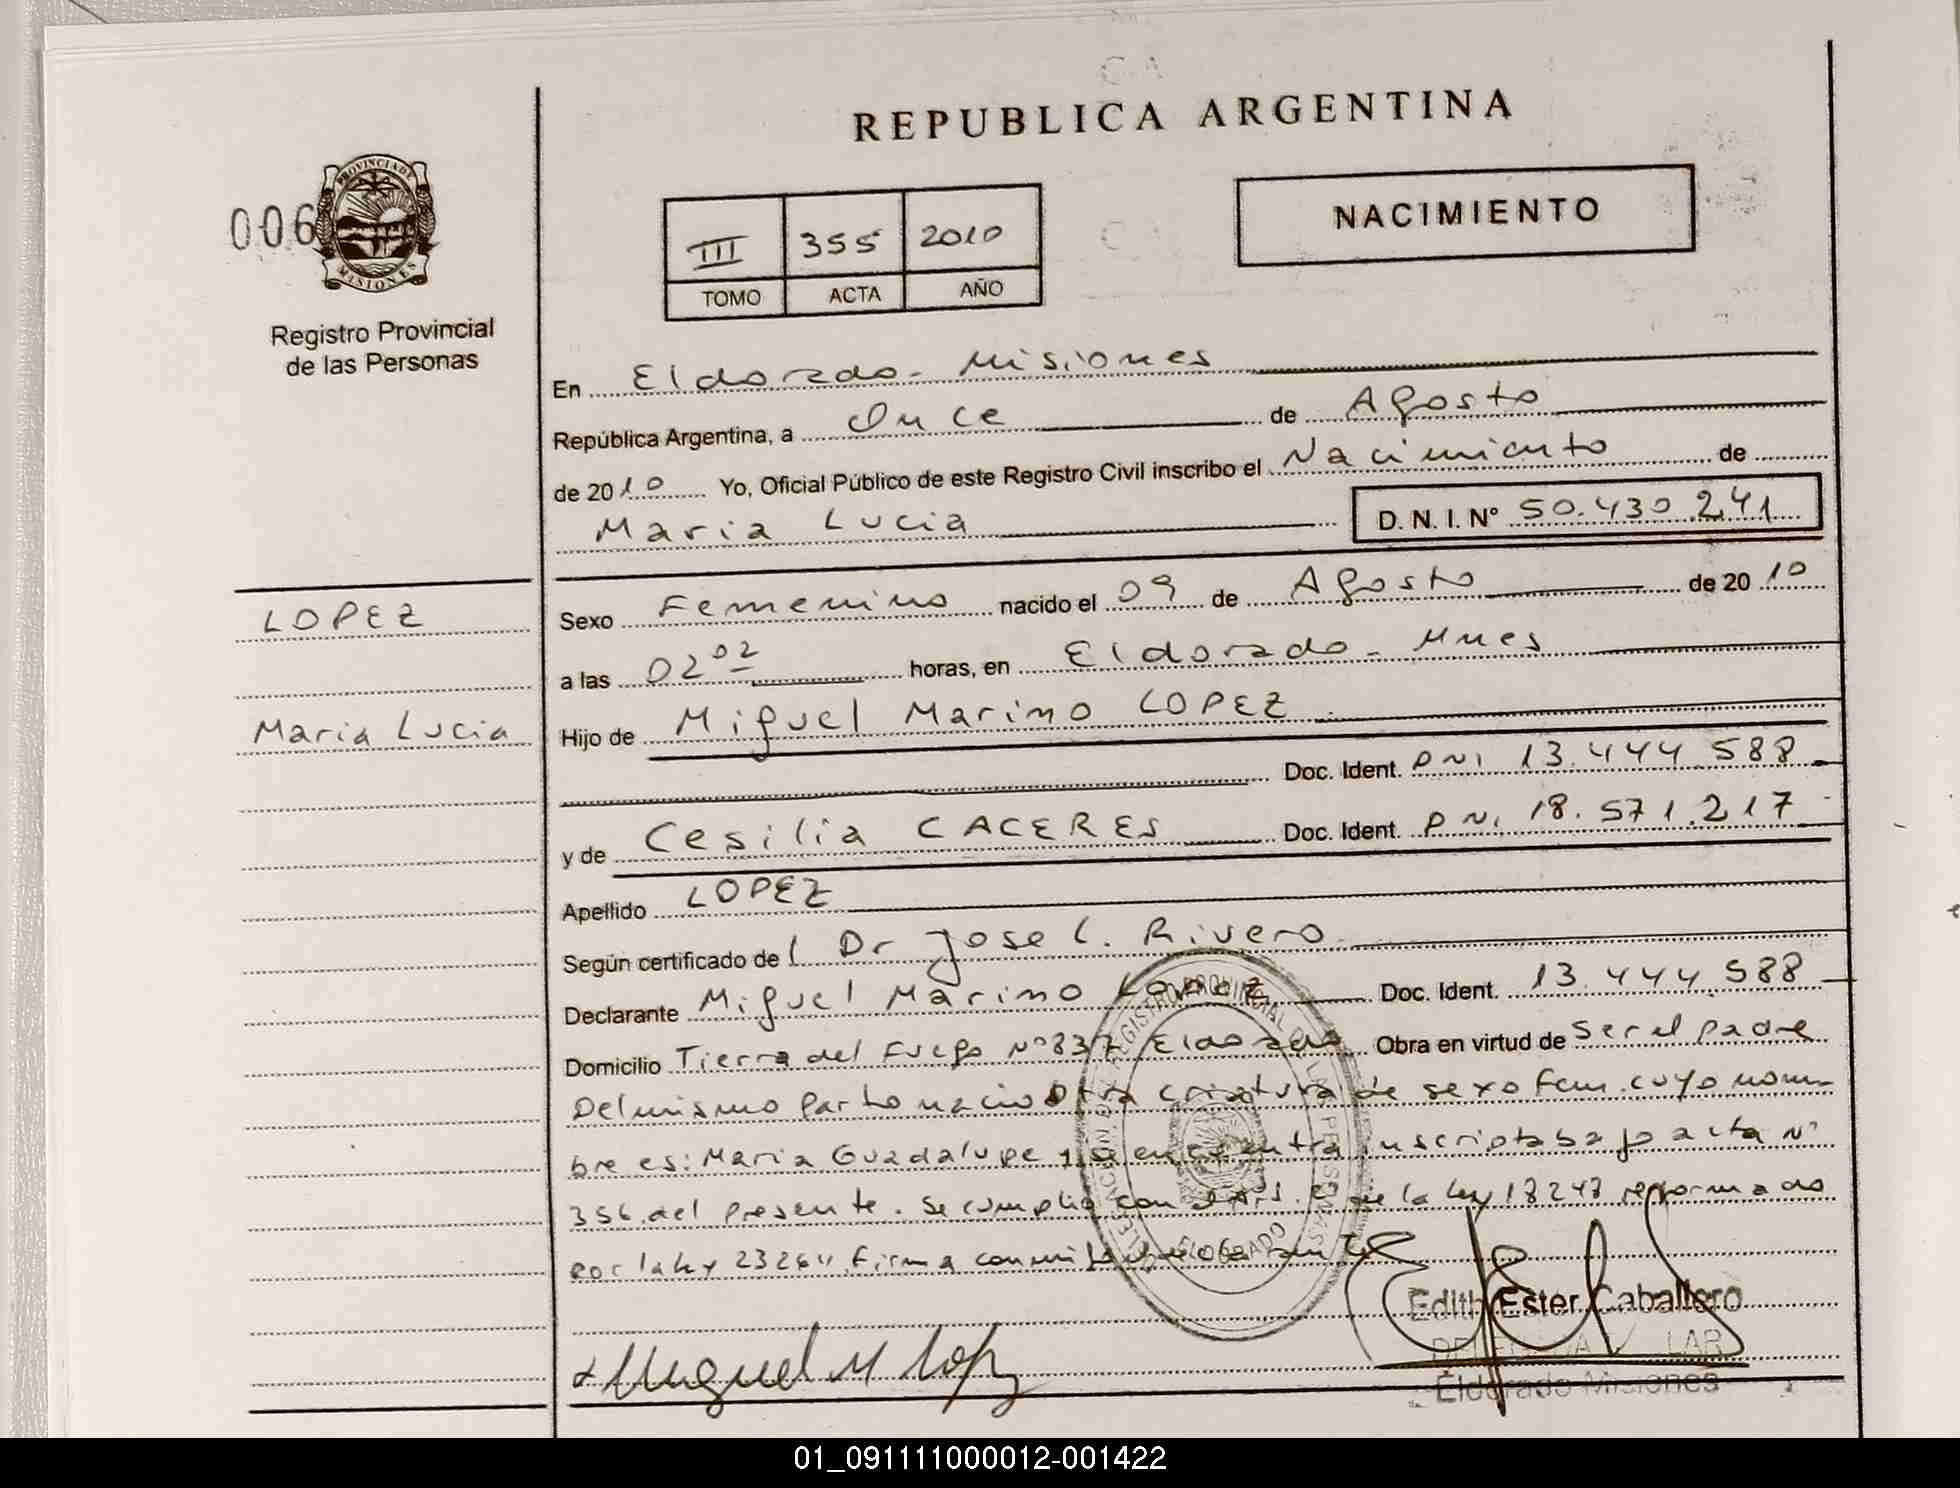 REPUBLICA ARGENTINA
006
PROVINCIA DE
MISIONES
Registro Provincial
de las Personas
III 355 2010
TOMO ACTA AÑO
NACIMIENTO
En Eldorado - Misiones
República Argentina, a Once de Agosto
de 2010 Yo, Oficial Público de este Registro Civil inscribo el Nacimiento de
Maria Lucia D. N. I. Nº 50.430.241
LOPEZ
Maria Lucia
Sexo Femenino nacido el 09 de Agosto de 2010
a las 02 02 horas, en Eldorado - Mnes
Hijo de Miguel Marino LOPEZ
Doc. Ident. DNI 13.444.588
y de Cesilia CACERES Doc. Ident. DNI 18.571.217
Apellido LOPEZ
Según certificado de l Dr Jose C. Rivero
Declarante Miguel Marino Lopez Doc. Ident. 13.444.588
Domicilio Tierra del Fuego Nº 837 Eldorado Obra en virtud de Ser el padre
Del mismo Parto nacio Otra criatura de sexo fem. cuyo nom-
bre es: Maria Guadalupe y se encuentra inscripta bajo acta Nº
356 del presente. Se cumplio con de la Ley 18248 reformado
por la Ley 23264 Firma
Miguel M Lopez
Edith Ester Caballero
Eldorado Misiones
01_091111000012-001422